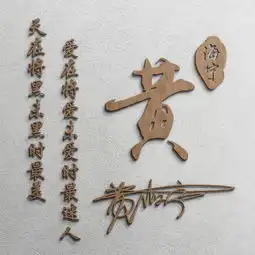 天在将黑未黑时最美
爱在将爱未爱时最迷人
黄
海宁